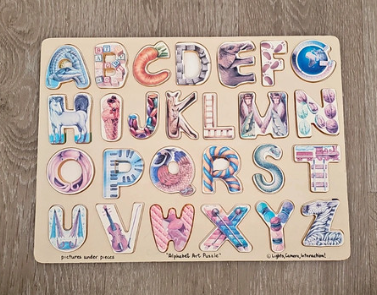 A B C D E F G
H I J K L M N
O P Q R S T
U V W X Y Z
pictures under pieces "Alphabet Art Puzzle" © Lights, Camera, Interaction!